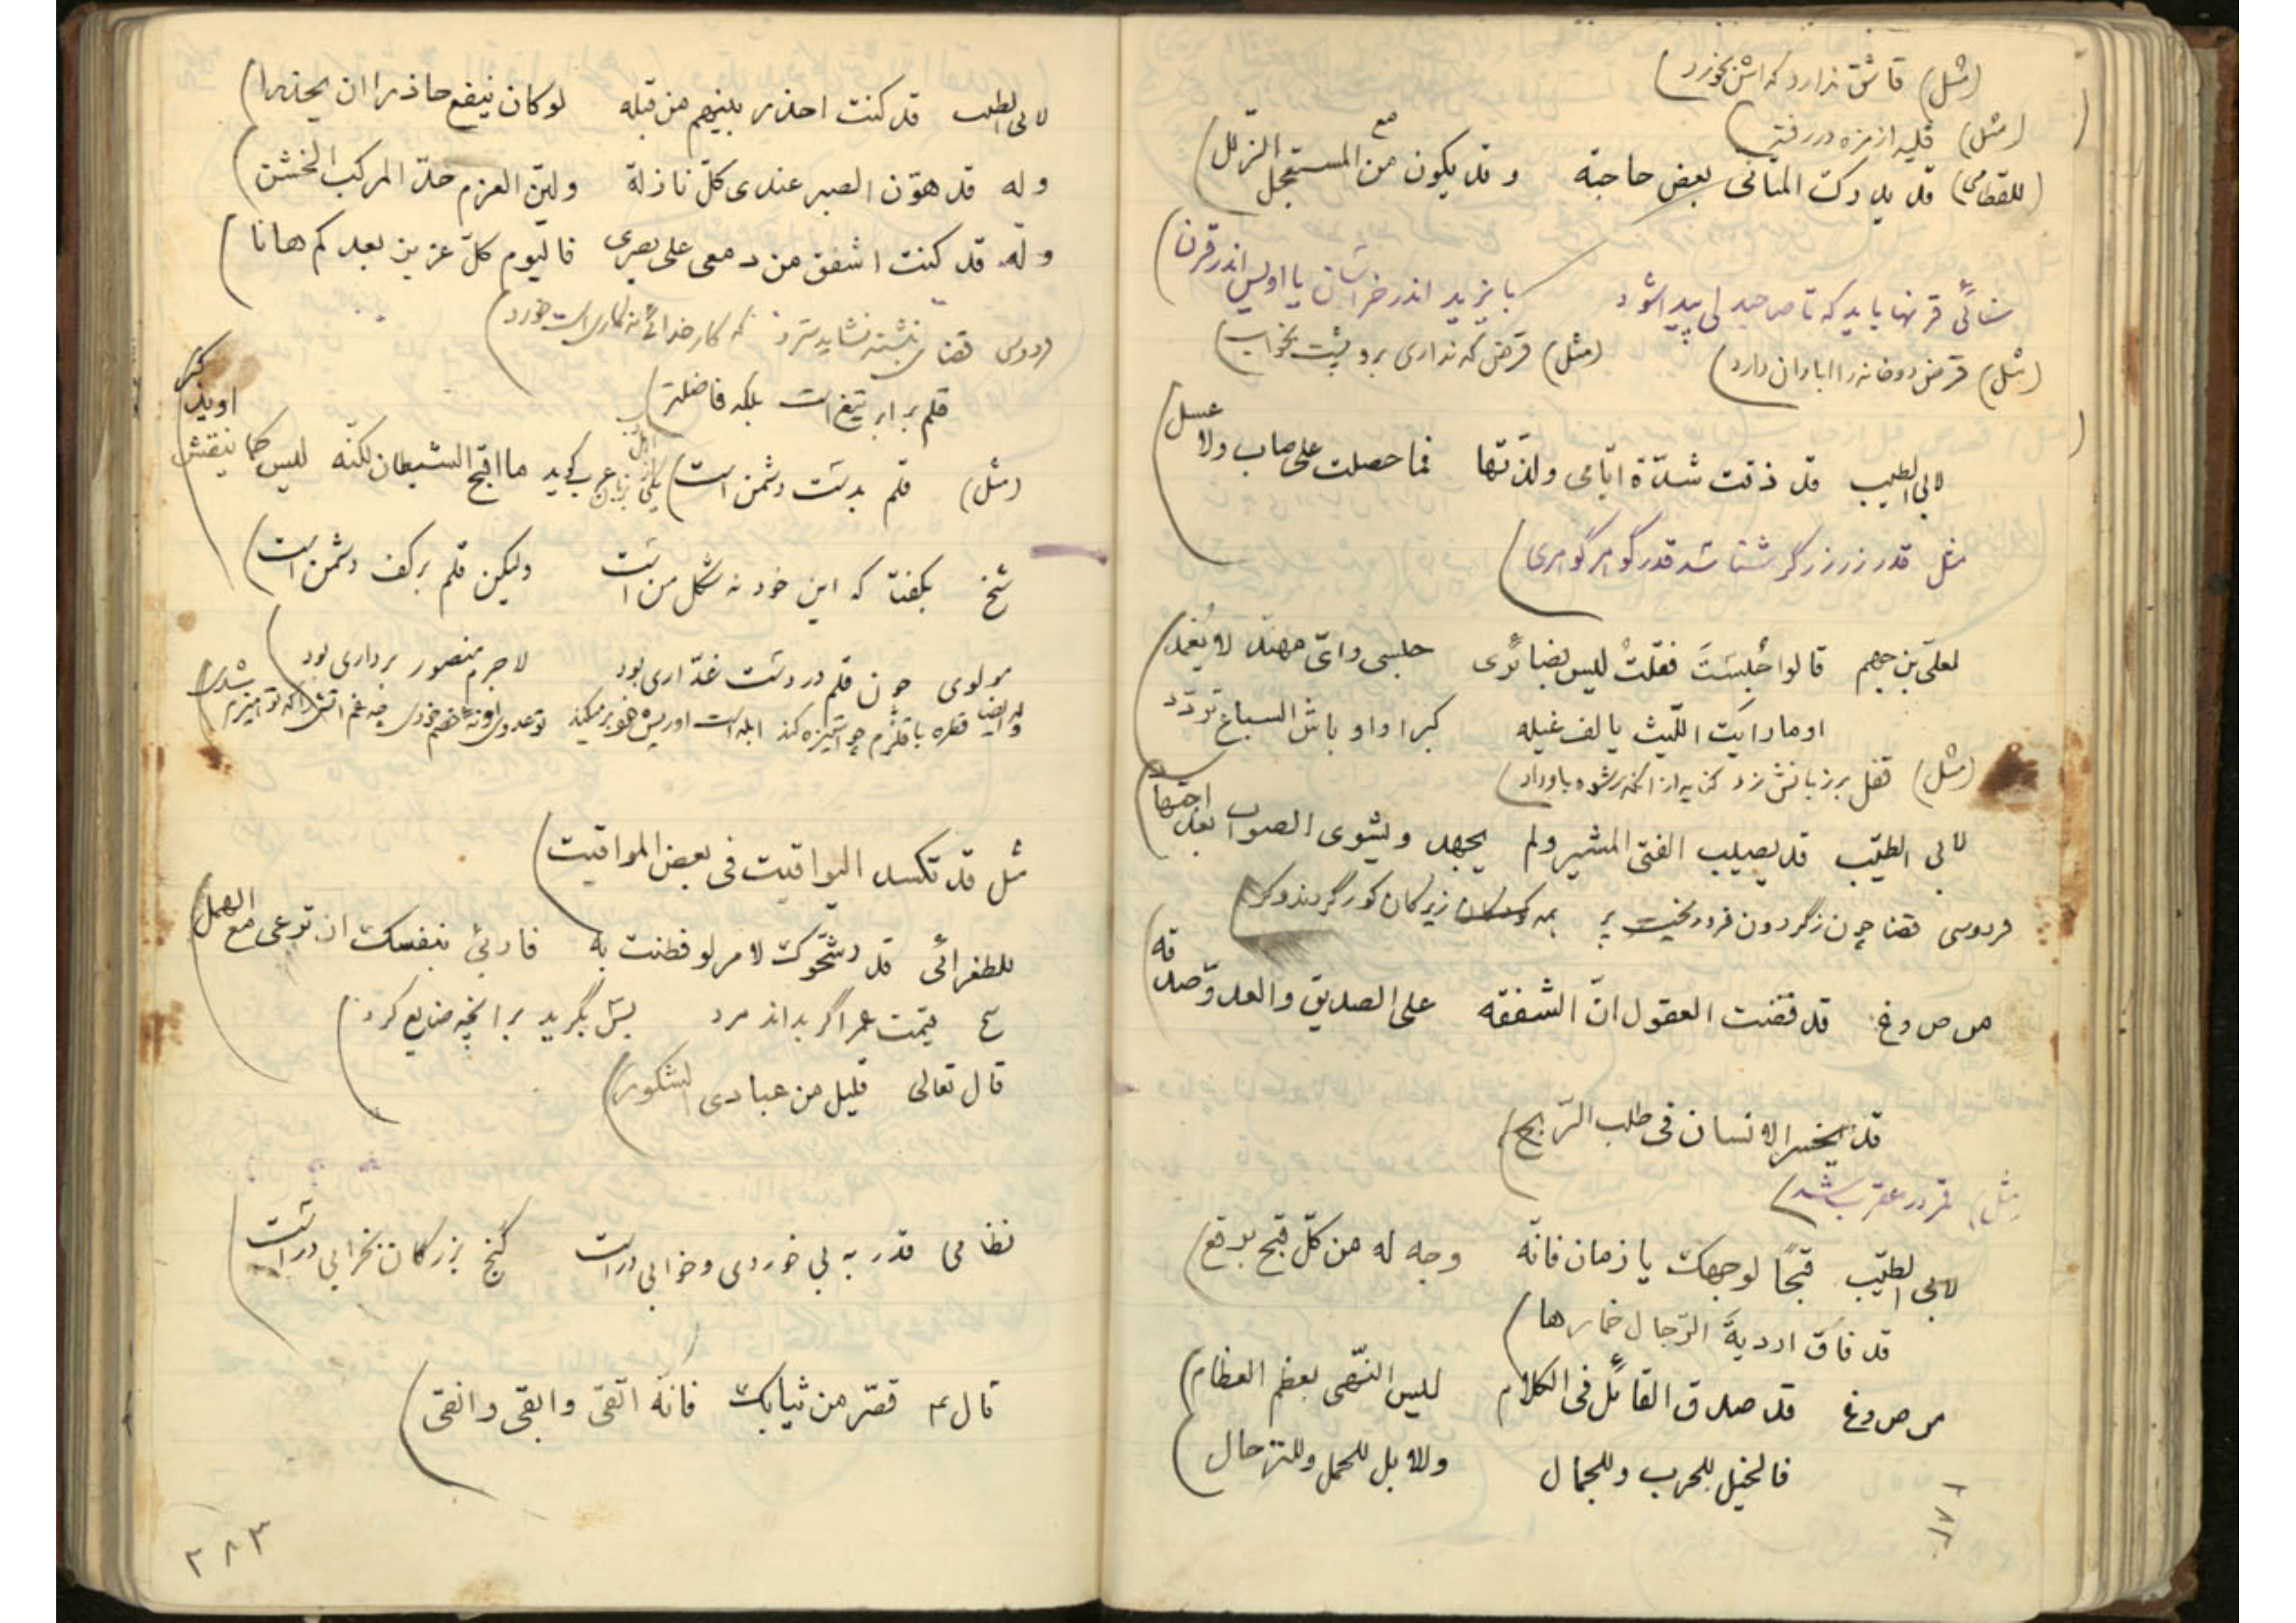 (مثل) قاشق ندارد که اش بخورد
(مثل) قلیه از مزه در رفته
(للقطامی) قد یدرک المتأنی بعض حاجته و قد یکون من المستعجل الزلل
مع
سنائی قرنها باید که تا صاحبدلی پیدا شود بایزید اندر خراسان یا اویس اندر قرن
(مثل) قرض دو خانه را ابادان دارد (مثل) قرض که نداری برو پشت بخواب
لابی الطیب قد ذقت شدّة ایّامی ولذّتها فما حصلت علی صاب ولا عسل
مثل قدر زر زرگر شناسد قدر گوهر گوهری
لعلی بن جهم قالوا حُبِستَ فقلتُ لیس بضائری حبسی وایّ مهنّد لا یُغمد
اوما رایت اللّیث یالف غیله کبرا واوباش السباع تردّد
(مثل) قفل بر زبانش زد کنایه از انکه رشوه باو داد
لابی الطیّب قد یصیب الفتی المشیر ولم یجهد ویشوی الصواب بعد اجتهاد
فردوسی قضا چون زگردون فرو ریخت پر همه زیرکان کور گردند و کر
من ص و غ قد قضت العقول انّ الشفقه علی الصدیق والعدوّ صدقه
قد یخسر الانسان فی طلب الرّبح
مثل قمر در عقرب شد
لابی الطیّب قبحًا لوجهک یا زمان فانّه وجه له من کلّ قبح برقع
قد فاق اردیةَ الرّجال خمارها
من ص و غ قد صدق القائل فی الکلام لیس النّهی بعظم العظام
فالخیل للحرب وللجمال والابل للحمل وللترحال
لابی الطیب قد کنت احذر بینهم من قبله لو کان ینفع حاذرا ان یحذرا
وله قد هوّن الصبر عندی کلّ نازلة ولیّن العزم حدّ المرکب الخشن
وله قد کنت اشفق من دمعی علی بصری فالیوم کلّ عزیز بعدکم هانا
قضا نبشته نشاید سترد که کار خدائی نه کاریست خورد
قلم برابر تیغ است بلکه فاضلتر
(مثل) قلم بدست دشمن است ما اقبح الشیطان لکنّه لیس کما ینقش او یذکر
شیخ بگفتا که این خود نه شکل من است ولیکن قلم بر کف دشمن است
مولوی چون قلم در دست غدّاری بود لاجرم منصور برداری بود
وله ایضا قطره با قلزم چو استیزه کند ابله است او ریش خود بر میکند
مثل قد تکسد الیواقیت فی بعض المواقیت
للطغرائی قد رشّحوک لامر لو فطنت به فاربئ بنفسک ان ترعی مع الهمل
قیمت عمر اگر بداند مرد بس بگرید بر انچه ضایع کرد
قال تعالی قلیل من عبادی الشکور
نظامی قدر به بی خوردی و خوابی در است گنج بزرگان بخرابی در است
قال ع قصّر من ثیابک فانّه اتقی وابقی وانقی
۲۸۳